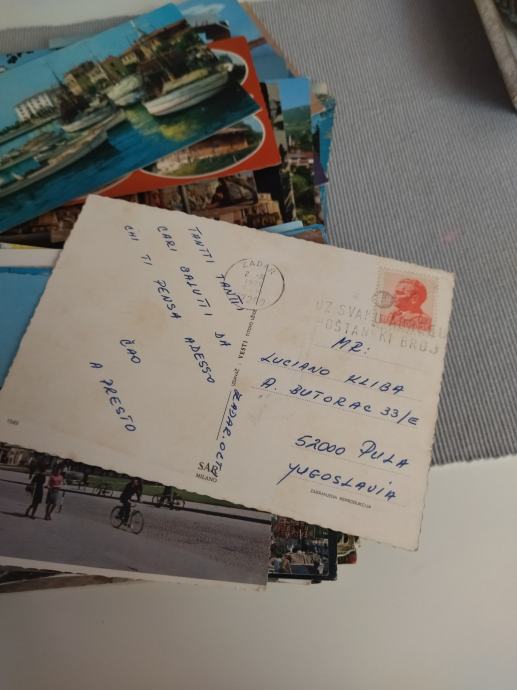 TANTI TANTI
CARI SALUTI DA
CHI TI PENSA ADESSO
ČAO
A PRESTO
ZADAR
UZ SVAKU
POŠTANSKI BROJ
MR:
LUCIANO KLIBA
A. BUTORAC 33/E
52000 PULA
YUGOSLAVIA
SAR
MILANO
ZABRANJENA REPRODUKCIJA